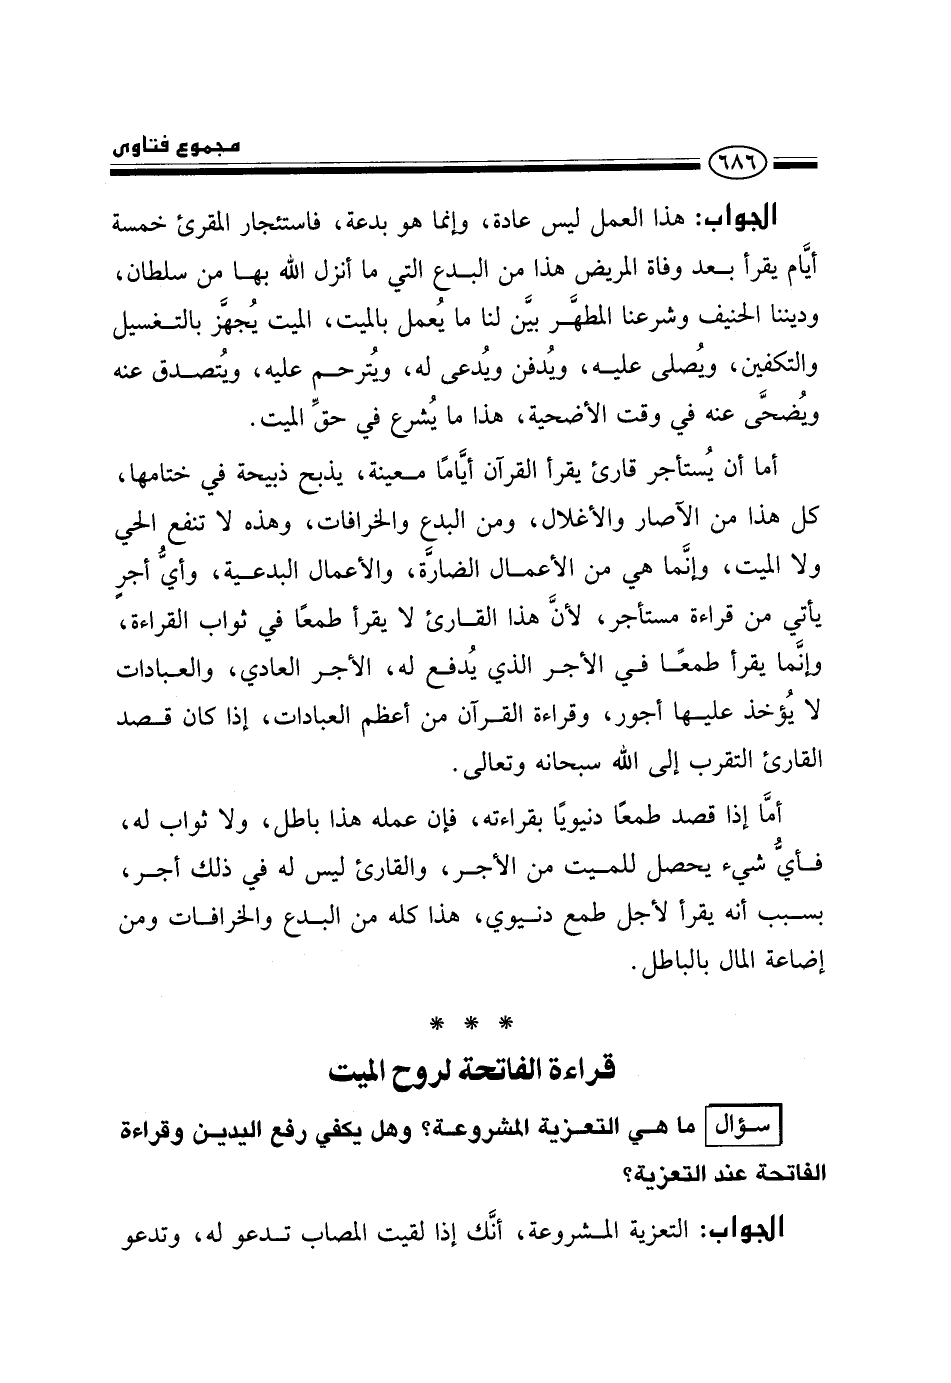 مجموع فتاوى
٦٨٦
الجواب: هذا العمل ليس عادة، وإنما هو بدعة، فاستئجار المقرئ خمسة
أيَّام يقرأ بعد وفاة المريض هذا من البدع التي ما أنزل الله بها من سلطان،
وديننا الحنيف وشرعنا المطهَّر بيَّن لنا ما يُعمل بالميت، الميت يُجهزَّ بالتغسيل
والتكفين، ويُصلى عليه، ويُدفن ويُدعى له، ويُترحم عليه، ويُتصدق عنه
ويُضحَّى عنه في وقت الأضحية، هذا ما يُشرع في حقِّ الميت.
أما أن يُستأجر قارئ يقرأ القرآن أيَّامًا معينة، يذبح ذبيحة في ختامها،
كل هذا من الآصار والأغلال، ومن البدع والخرافات، وهذه لا تنفع الحي
ولا الميت، وإنَّما هي من الأعمال الضارَّة، والأعمال البدعية، وأيُّ أجرٍ
يأتي من قراءة مستأجر، لأنَّ هذا القارئ لا يقرأ طمعًا في ثواب القراءة،
وإنَّما يقرأ طمعًا في الأجر الذي يُدفع له، الأجر العادي، والعبادات
لا يُؤخذ عليها أجور، وقراءة القرآن من أعظم العبادات، إذا كان قصد
القارئ التقرب إلى الله سبحانه وتعالى.
أمَّا إذا قصد طمعًا دنيويًا بقراءته، فإن عمله هذا باطل، ولا ثواب له،
فأيُّ شيء يحصل للميت من الأجر، والقارئ ليس له في ذلك أجر،
بسبب أنه يقرأ لأجل طمع دنيوي، هذا كله من البدع والخرافات ومن
إضاعة المال بالباطل.
* * *
قراءة الفاتحة لروح الميت
سؤال ما هي التعزية المشروعة؟ وهل يكفي رفع اليدين وقراءة
الفاتحة عند التعزية؟
الجواب: التعزية المشروعة، أنَّك إذا لقيت المصاب تدعو له، وتدعو